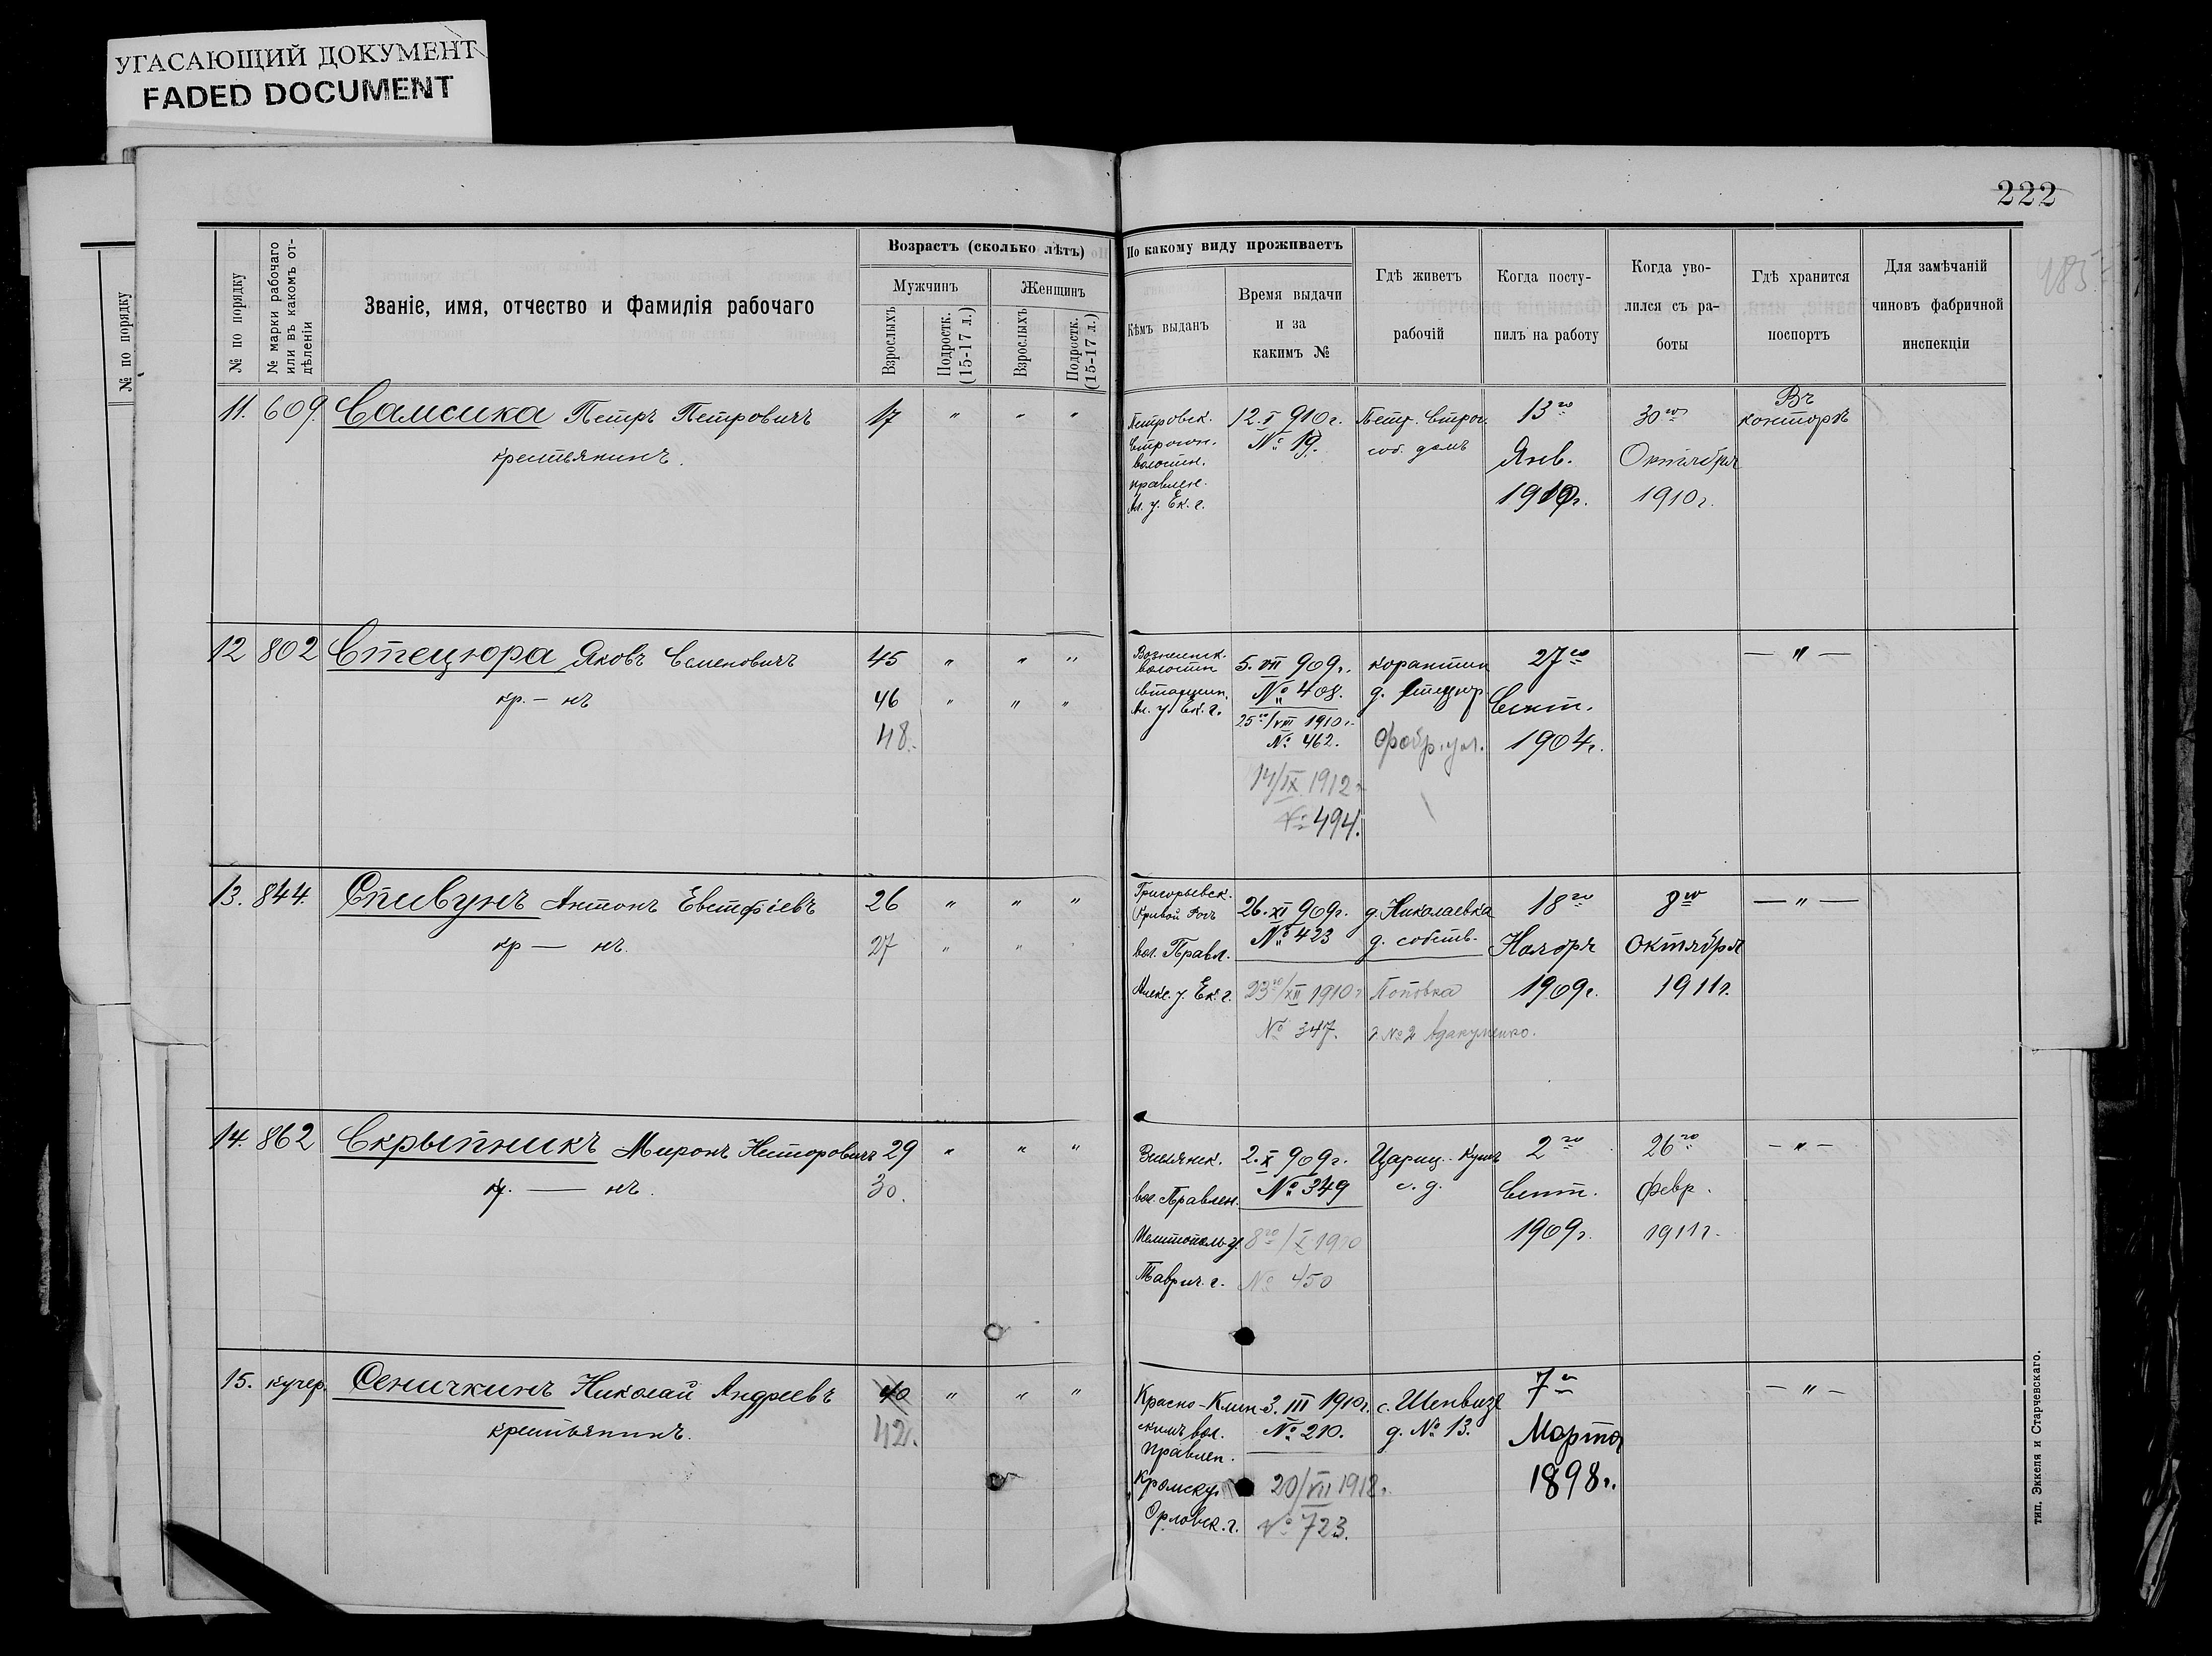 УГАСАЮЩИЙ ДОКУМЕНТ
FADED DOCUMENT
222
185
№ по порядку
№ по порядку
№ марки рабочаго или въ какомъ отдѣленіи
Званіе, имя, отчество и фамилія рабочаго
Возрастъ (сколько лѣтъ)
Мужчинъ
Женщинъ
Взрослыхъ
Подростк. (15-17 л.)
Взрослыхъ
Подростк. (15-17 л.)
По какому виду проживаетъ
Кѣмъ выданъ
Время выдачи и за какимъ №
Гдѣ живетъ рабочій
Когда поступилъ на работу
Когда уволился съ работы
Гдѣ хранится паспортъ
Для замѣчаній чиновъ фабричной инспекціи
11. 609. Самсика Петръ Петровичъ 17 " " "
крестьянинъ.
Петровск.
Строгон.
волостн.
правлен.
Ал. у. Ек. г.
12. I 910 г.
№ 19.
Петр. Строг.
соб. домъ
13го
Янв.
1910г.
30го
Октября
1910г.
Въ
конторѣ
12 802 Стецюра Яковъ Семеновичъ 45 " " "
кр. – нъ 46 " " "
48.
Вознесенск.
волостн
старшин.
Ал. у. Ек. г.
5. VII 909г.
№ 408.
25го/VIII 1910г.
№ 462.
14/IX 1912г
№ 494.
карантин
д. Стецюр
Фабр. ул.
27го
Сент.
1904г.
— " —
13. 844. Спивунъ Антонъ Евстфіевъ 26 " " "
кр — нъ. 27 " "
Григорьевск.
Кривой Рогъ
вол. Правл.
Алекс. у. Ек. г.
26. XI 909г.
№ 423
23го/XII 1910г
№ 347.
д. Николаевка
д. собств.
Поповка
д. № 2
18го
Ноября
1909г.
8го
Октября
1911г.
— " —
14. 862 Скрыпникъ Миронъ Несторовичъ 29 " " "
кр. — нъ. 30.
вол. Правлен.
Мелитополь у.
Таврич. г.
2. X 909г.
№ 349
8го/X 1910
№ 450
Цариц. Кутъ
с. д.
2го
Сент.
1909г.
26го
Февр.
1911г.
– " –
15. кучер. Сеничкинъ Николай Андреевъ 40 " " "
крестьянинъ. 42.
Красно-Клин
скимъ вол.
правлен.
Кромск у.
Орловск. г.
3. III 1910г.
№ 210.
20/VII 1912г.
№ 723.
с. Шенвизе
д. № 13.
7го
Марта
1898г.
– " –
тип. Эккеля и Старчевскаго.